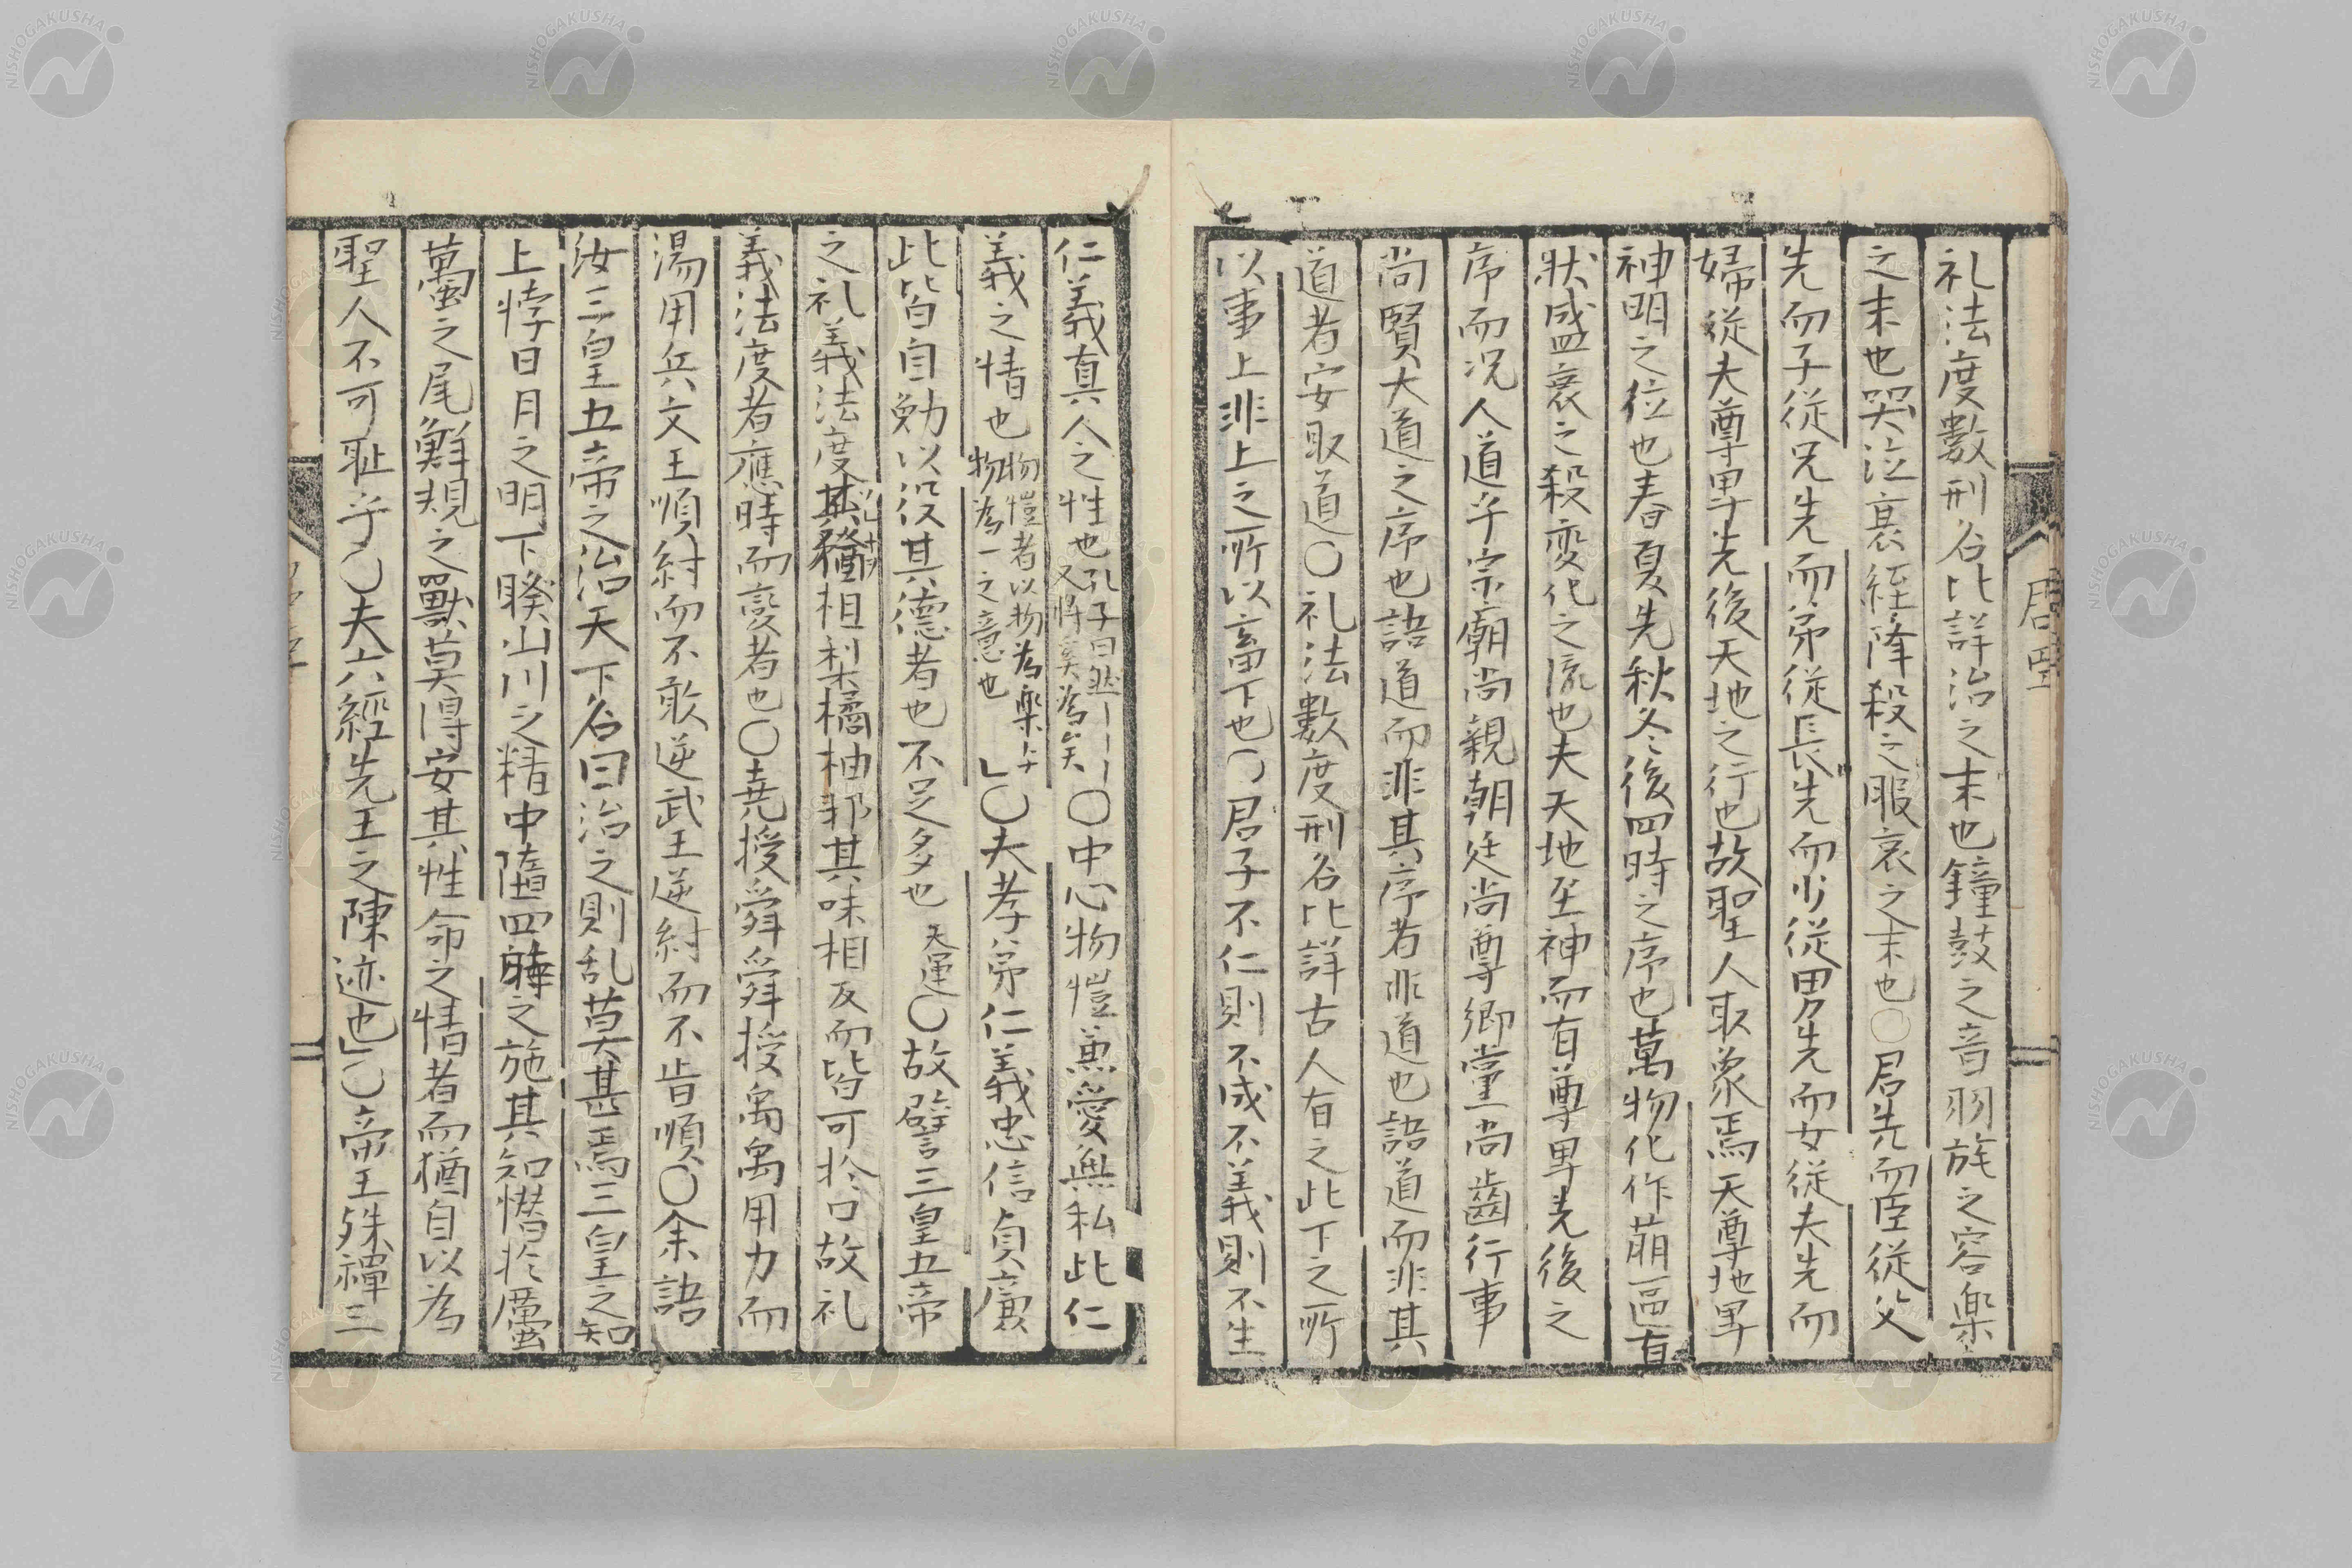 礼法度數刑名比詳治之末也鐘鼓之音羽旄之容楽
之末也哭泣衰絰降殺之服哀之末也〇君先而臣従父
先而子従兄先而弟従長先而少従男先而女従夫先而
婦従夫尊卑先後天地之行也故聖人取象焉天尊地卑
神明之位也春夏先秋冬後四時之序也萬物化作萠區有
状盛衰之殺変化之流也夫天地至神而有尊卑先後之
序而況人道乎宗廟尚親朝廷尚尊郷黨尚歯行事
尚賢大道之序也語道而非其序者非道也語道而非其
道者安取道〇礼法數度刑名比詳古人有之此下之所
以事上非上之所以畜下也〇君子不仁則不成不義則不生
仁義真人之性也又将奚為矣孔子曰然〇中心物愷兼愛無私此仁
義之情也物愷者以物為楽与物為一之意也」〇夫孝弟仁義忠信貞廉
此皆自勉以役其德者也不足多也 天運〇故譬三皇五帝
之礼義法度其猶柤梨橘柚邪其味相反而皆可於口故礼
義法度者應時而變者也〇堯授舜舜授禹禹用力而
湯用兵文王順紂而不敢逆武王逆紂而不肯順〇余語
汝三皇五帝之治天下名曰治之則乱莫甚焉三皇之知
上悖日月之明下睽山川之精中墮四時之施其知憯於蠣
蠆之尾鮮規之獸莫得安其性命之情者而猶自以為
聖人不可耻乎〇夫六經先王之陳迹也」〇帝王殊禪三
NISHOGAKUSHA